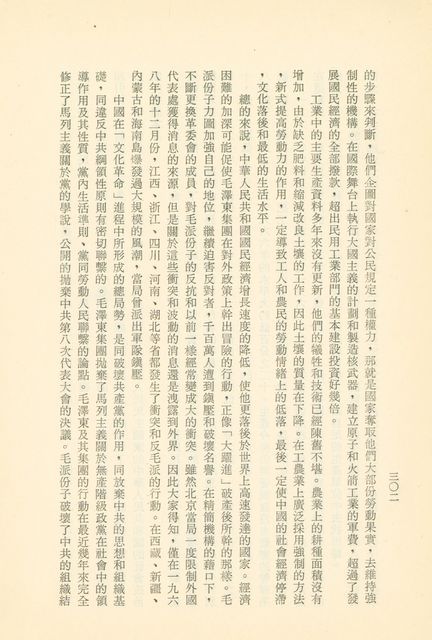 三〇二
的步驟來判斷，他們企圖對國家對公民規定一種權力，那就是國家奪取他們大部份勞動果實，去維持強
制性的機構。在國際舞台上執行大國主義的計劃和製造核武器，建立原子和火箭工業的軍費，超過了發
展國民經濟的全部撥款，超出民用工業部門的基本建設投資好幾倍。
工業中的主要生產資料多年來沒有更新，他們的犠牲和技術已經陳舊不堪。農業上的耕種面積沒有
增加，由於缺乏肥料和縮減改良土壤的工作，因此土壤的質量在下降。在工農業上廣泛採用強制的方法
，新式提高勞動力的作用，一定導致工人和農民的勞動情緒上的低落，最後一定使中國的社會經濟停滯
，文化落後和最低的生活水平。
總的來說，中華人民共和國國民經濟增長速度的降低，使他更落後於世界上高速發達的國家。經濟
困難的加深可能促使毛澤東集團在對外政策上幹出冒險的行動，正像「大躍進」破產後所幹的那樣。毛
派份子力圖加強自己的地位，繼續迫害反對者，千百萬人遭到鎭壓和破壞名譽。在精簡機構的藉口下，
不斷更換革委會的成員，對毛派份子的反抗和以前一樣經常變成大的衝突。雖然北京當局一度限制外國
代表處獲得消息的來源，但是關於這些衝突和波動的消息還是洩露到外界。因此大家得知，僅在一九六
八年的十二月份，江西、浙江、四川、河南、湖北等省都發生了衝突和反毛派的行動。在西藏、新疆、
內蒙古和海南島爆發過大規模的風潮，當局曾派出軍隊鎭壓。
中國在「文化革命」進程中所形成的總局勢，是同破壞共產黨的作用，同放棄中共的思想和組織基
礎，同違反中共綱領性原則有密切聯繫的。毛澤東集團拋棄了馬列主義關於無產階級政黨在社會中的領
導作用及其性質，黨內生活準則、黨同勞動人民聯繫的論點。毛澤東及其集團的行動在最近幾年來完全
修正了馬列主義關於黨的學說，公開的拋棄中共第八次代表大會的決議。毛派份子破壞了中共的組織結